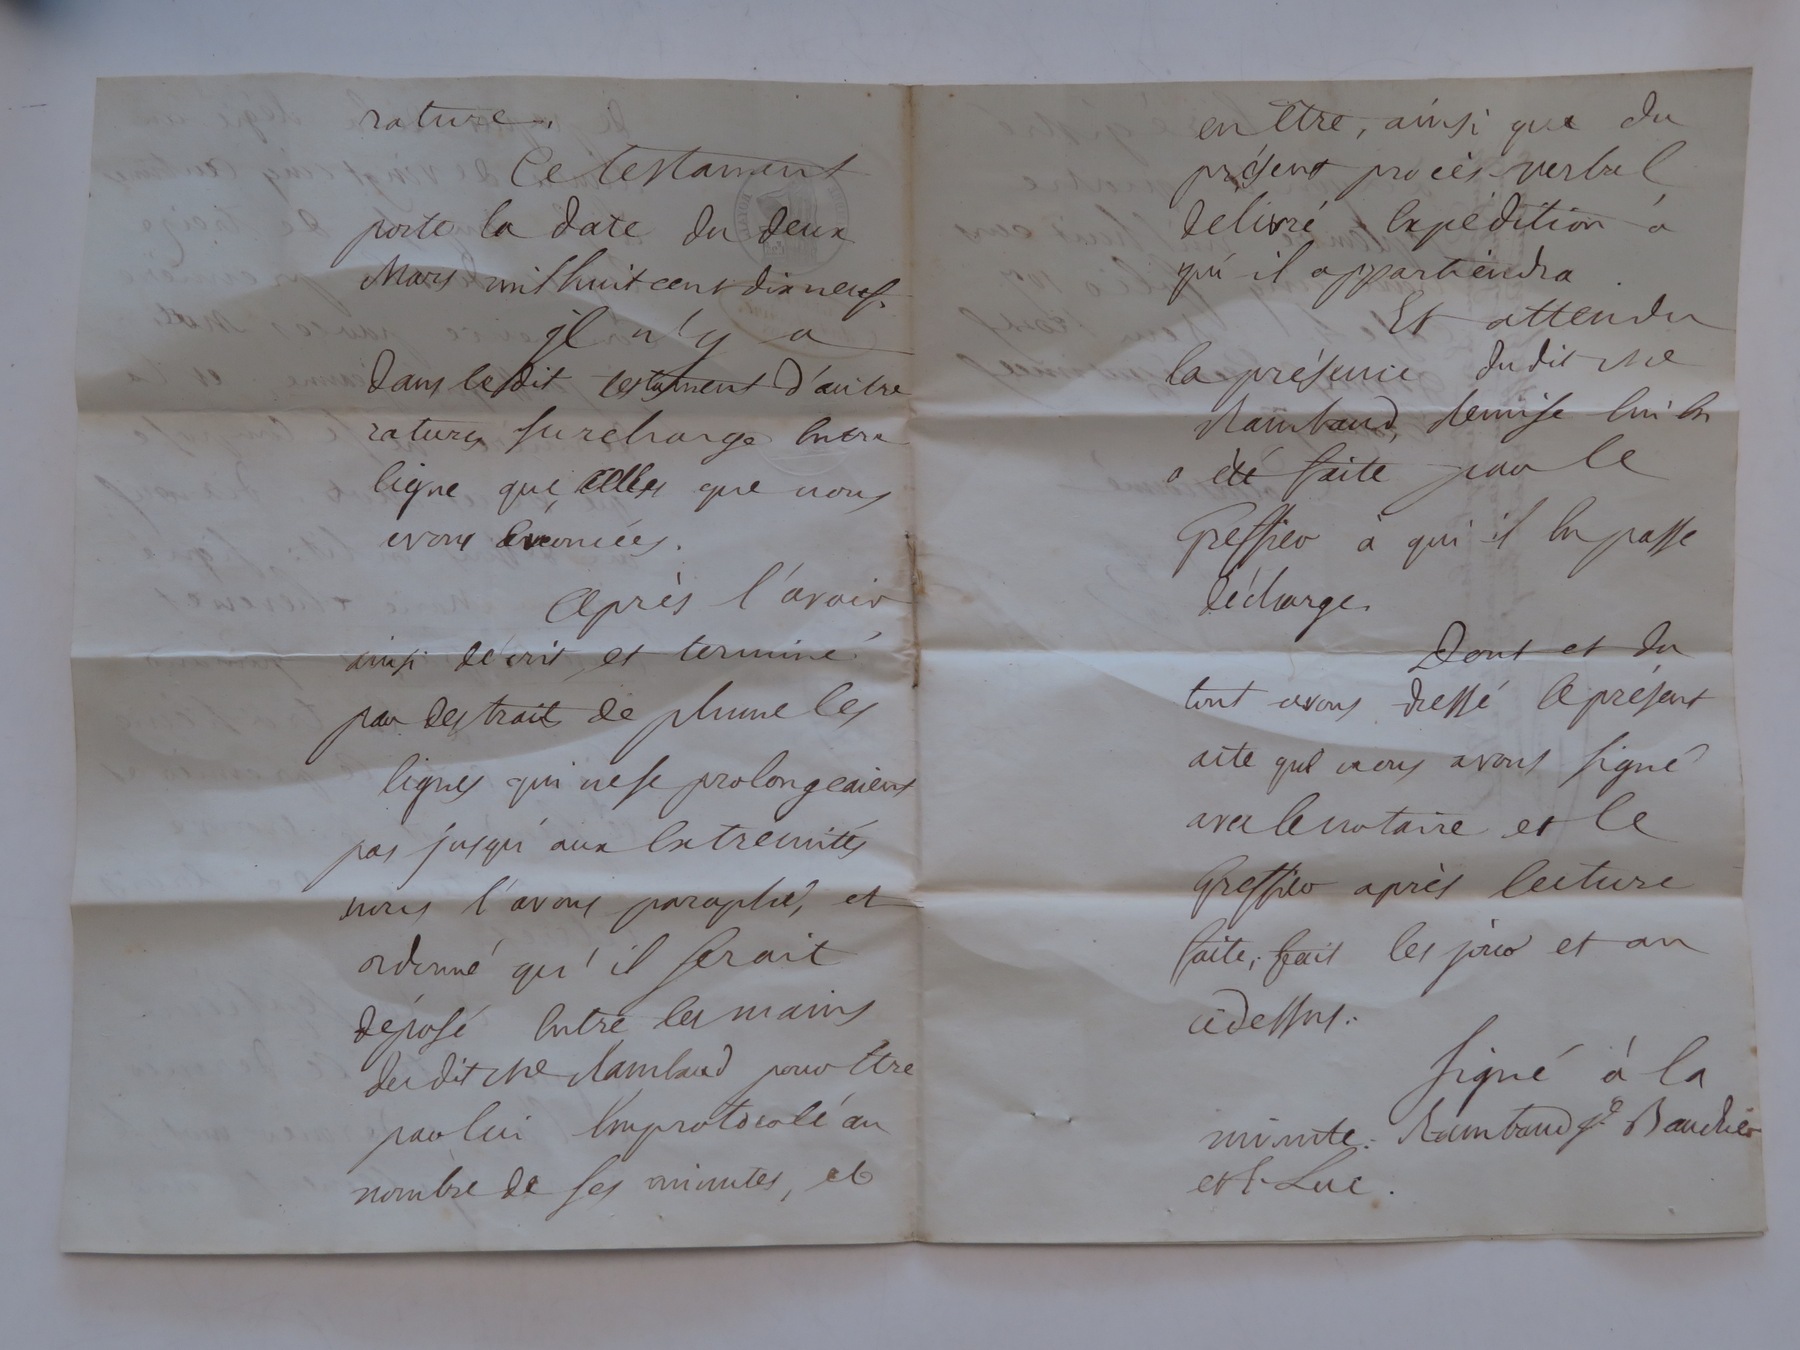 rature.
Ce testament
porte la date du deux
Mars mil huit cent dix neuf.
il n'y a
dans ledit testament d'autre
rature surcharge entre
ligne que celles que nous
avons énoncées.
Après l'avoir
ainsi décrit et terminé
par des trait de plume les
lignes qui ne se prolongeaient
pas jusqu'aux extremités
nous l'avons paraphé, et
ordonné qu'il serait
déposé entre les mains
dudit Me Rambaud pour être
par lui improtocolé au
nombre de ses minutes, et
en être, ainsi que du
présent procès-verbal
delivré expedition à
qui il appartiendra
Et attendu
la présence dudit Me
Rambaud, remise lui en
a été faite par le
Greffier à qui il en passe
décharge.
Dont et du
tout avons dressé le présent
acte que nous avons signé
avec le notaire et le
Greffier après lecture
faite, fait les jour et an
cidessus.
Signé à la
minute. Rambaud Baudier
et Luc.